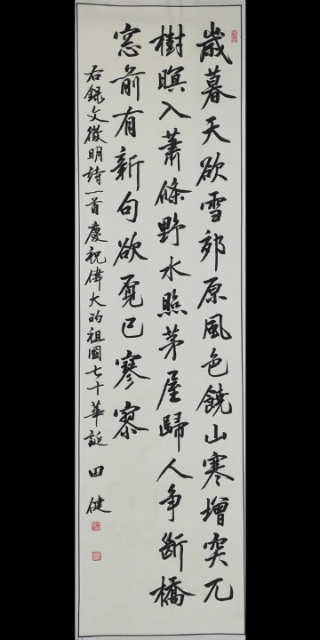 歲暮天欲雪郊原風色饒山寒增突兀
樹暝入蕭條野水臨茅屋歸人争斷橋
窓前有新句欲覓已寥寥
右録文徵明詩一首慶祝偉大的祖國七十華誕 田健